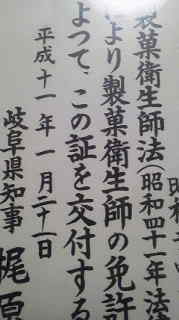 昭和
製菓衛生師法(昭和四十一年法
より製菓衛生師の免許
よつて、この証を交付する
平成十一年一月二十一日
岐阜県知事 梶原